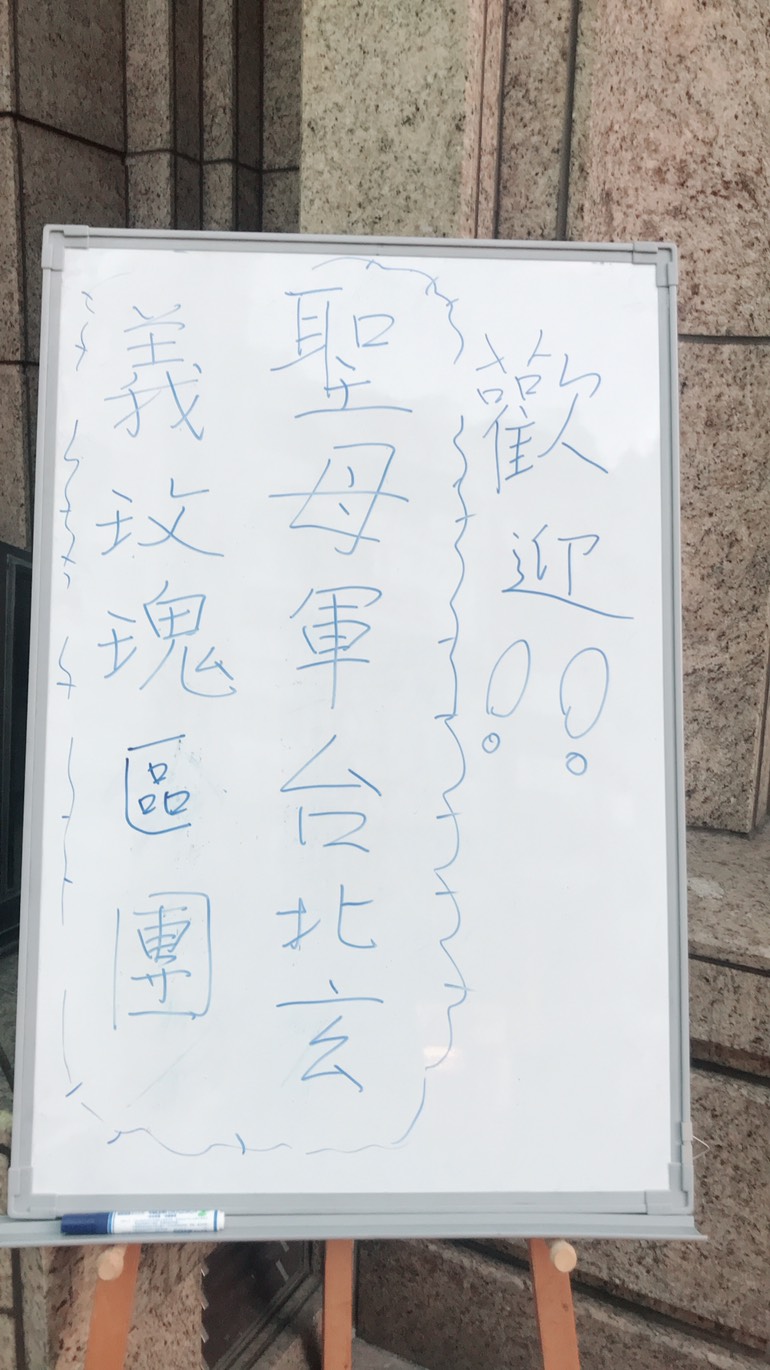 歡迎!!
聖母軍台北玄
義玫瑰區團